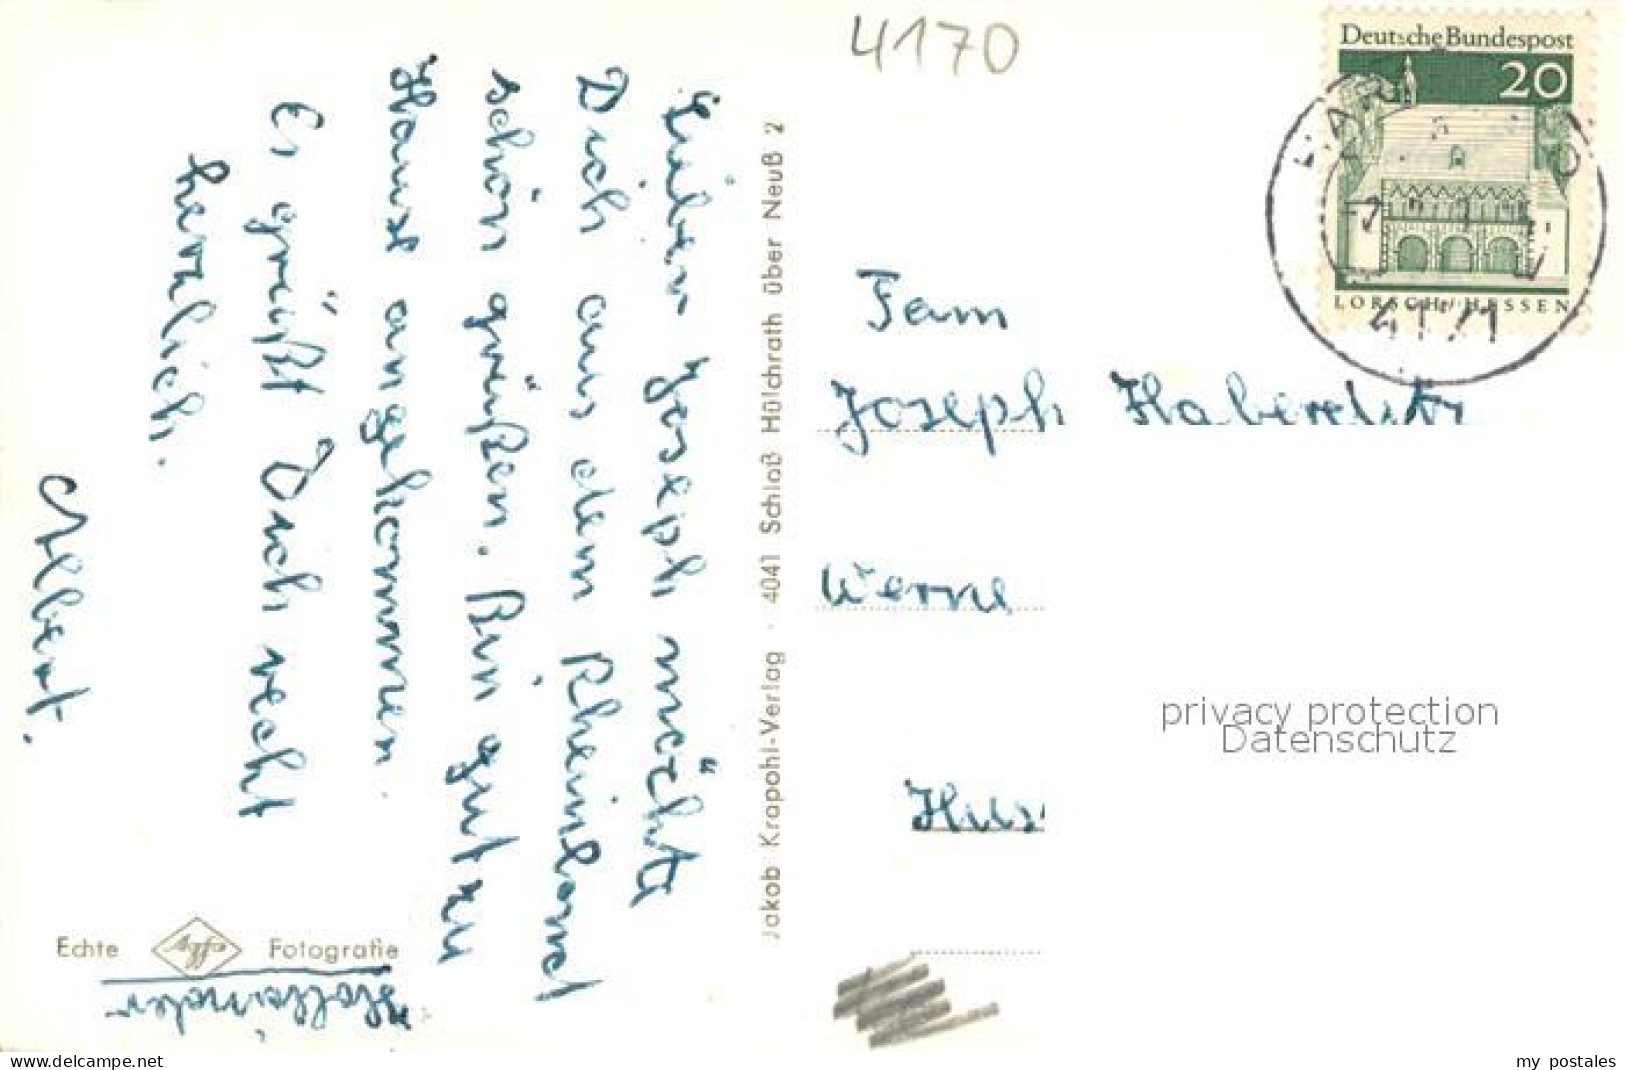 4170
Deutsche Bundespost
20
LORSCH/HESSEN
4171
Lieber Joseph möchte
Dich aus dem Rheinland
schön grüßen. Bin gut zu
Hause angekommen.
Es grüßt Dich recht
herzlich.
Albert.
Jakob Krapohl-Verlag · 4041 Schloß Hülchrath über Neuß 2
Fam
Joseph
Werne
privacy protection
Datenschutz
Echte Agfa Fotografie
www.delcampe.net
my postales